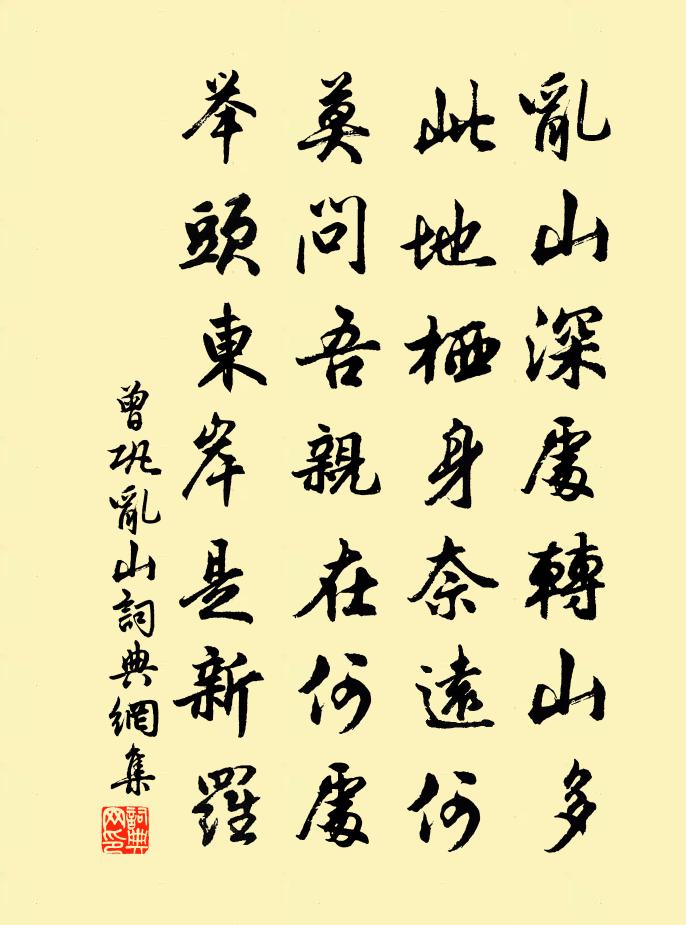 亂山深處轉山多
此地栖身奈遠何
莫問吾親在何處
举頭東岸是新羅
曾巩亂山詞典網集
詞典
网印